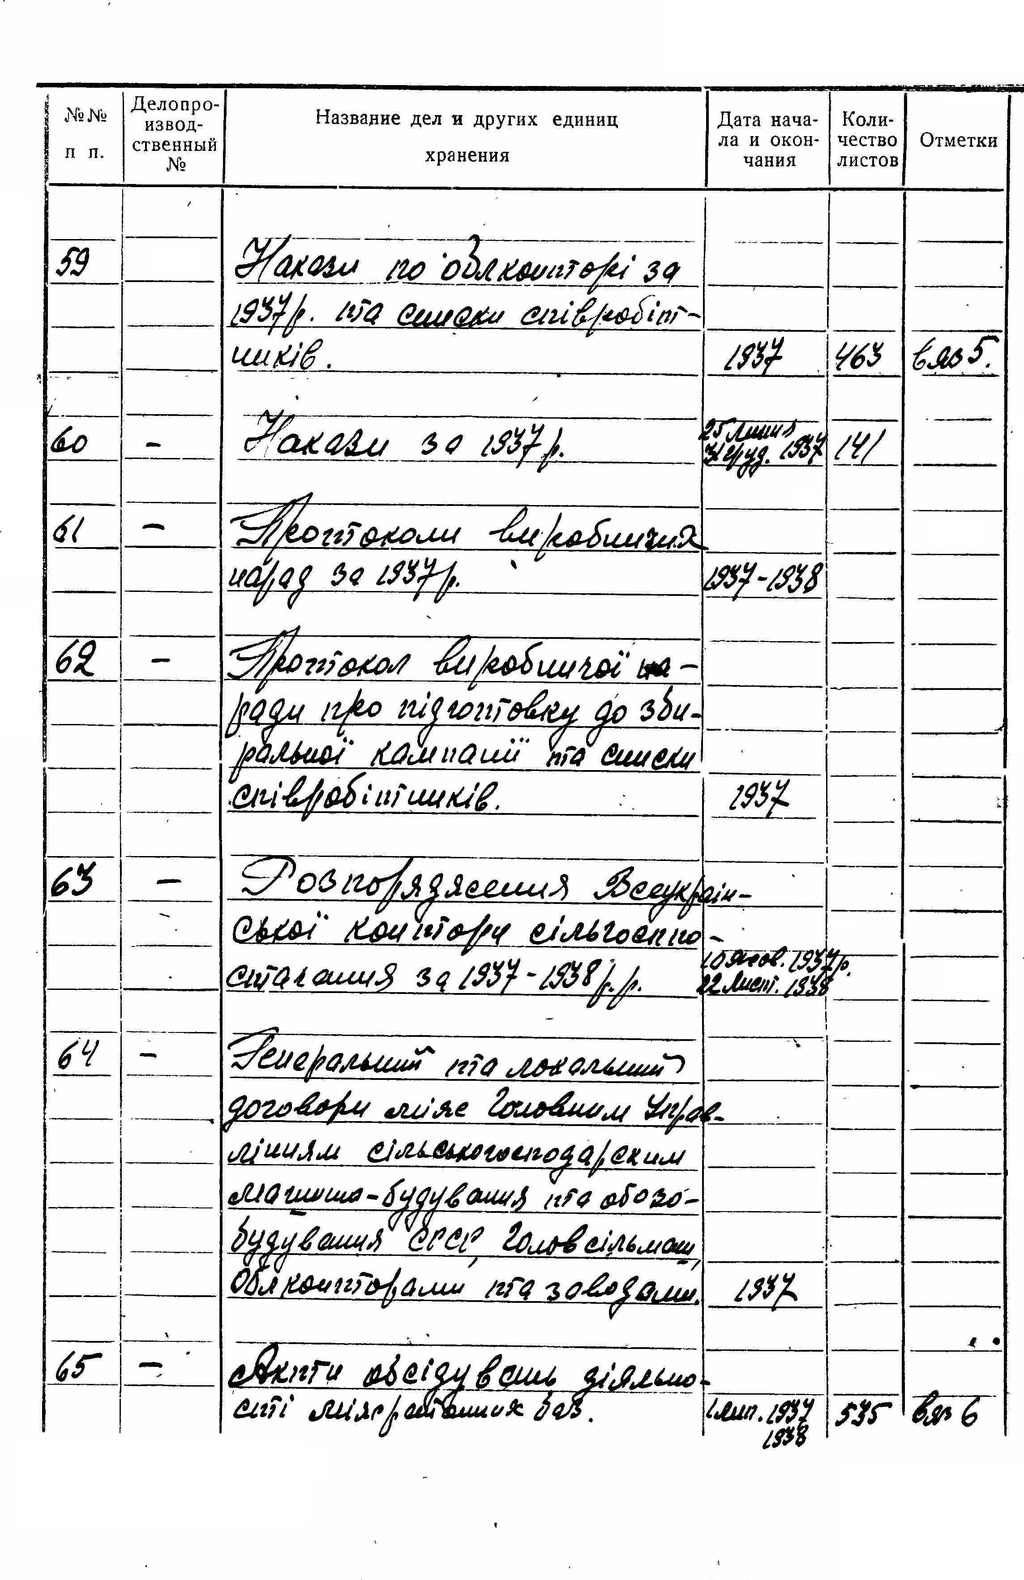 №№ п п. Делопро-изводственный № Название дел и других единиц хранения Дата начала и окончания Количество листов Отметки
59 Накази по облконторі за
1937 р. та списки співробіт-
ників. 1937 463 в'яз 5.
60 — Накази за 1937 р. 25 липня 31 груд. 1937 141
61 — Протоколи виробничих
нарад за 1937 р. 1937-1938
62 — Протокол виробничої на-
ради про підготовку до зби-
ральної кампанії та списки
співробітників. 1937
63 — Розпорядження Всеукраїн-
ської контори сільгосппо-
стачання за 1937-1938 р.р. 10 жов. 1937 р. 22 лист. 1938
64 — Генеральний та локальний
договори між Головним Управ-
лінням сільськогосподарским
машино-будування та обозо-
будування СРСР, Головсільмаш,
Облконторами та заводами. 1937
65 — Акти обслідувань діяльно-
сті міжрайонних баз. 1 лип. 1937 1938 535 в'яз 6